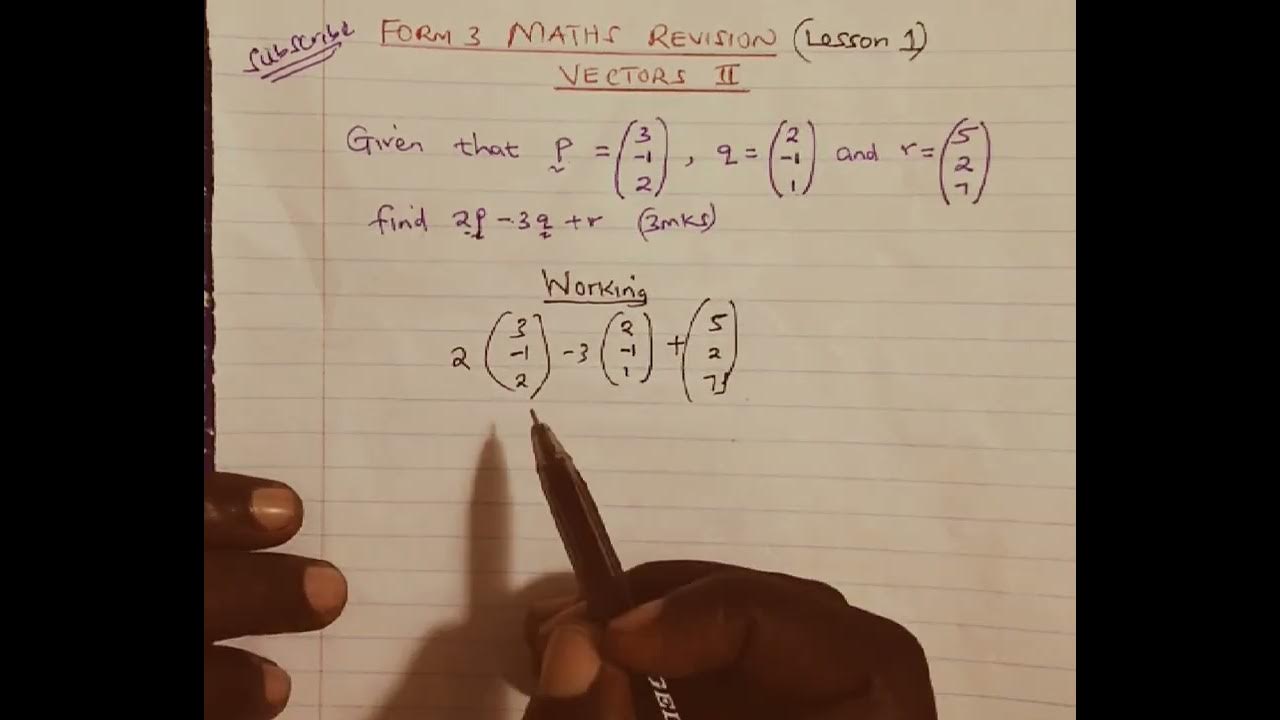 Subscribe
FORM 3 MATHS REVISION (Lesson 1)
VECTORS II
Given that p = (3 -1 2), q = (2 -1 1) and r = (5 2 7)
find 2p - 3q + r (3mks)
Working
2 (3 -1 2) - 3 (2 -1 1) + (5 2 7)